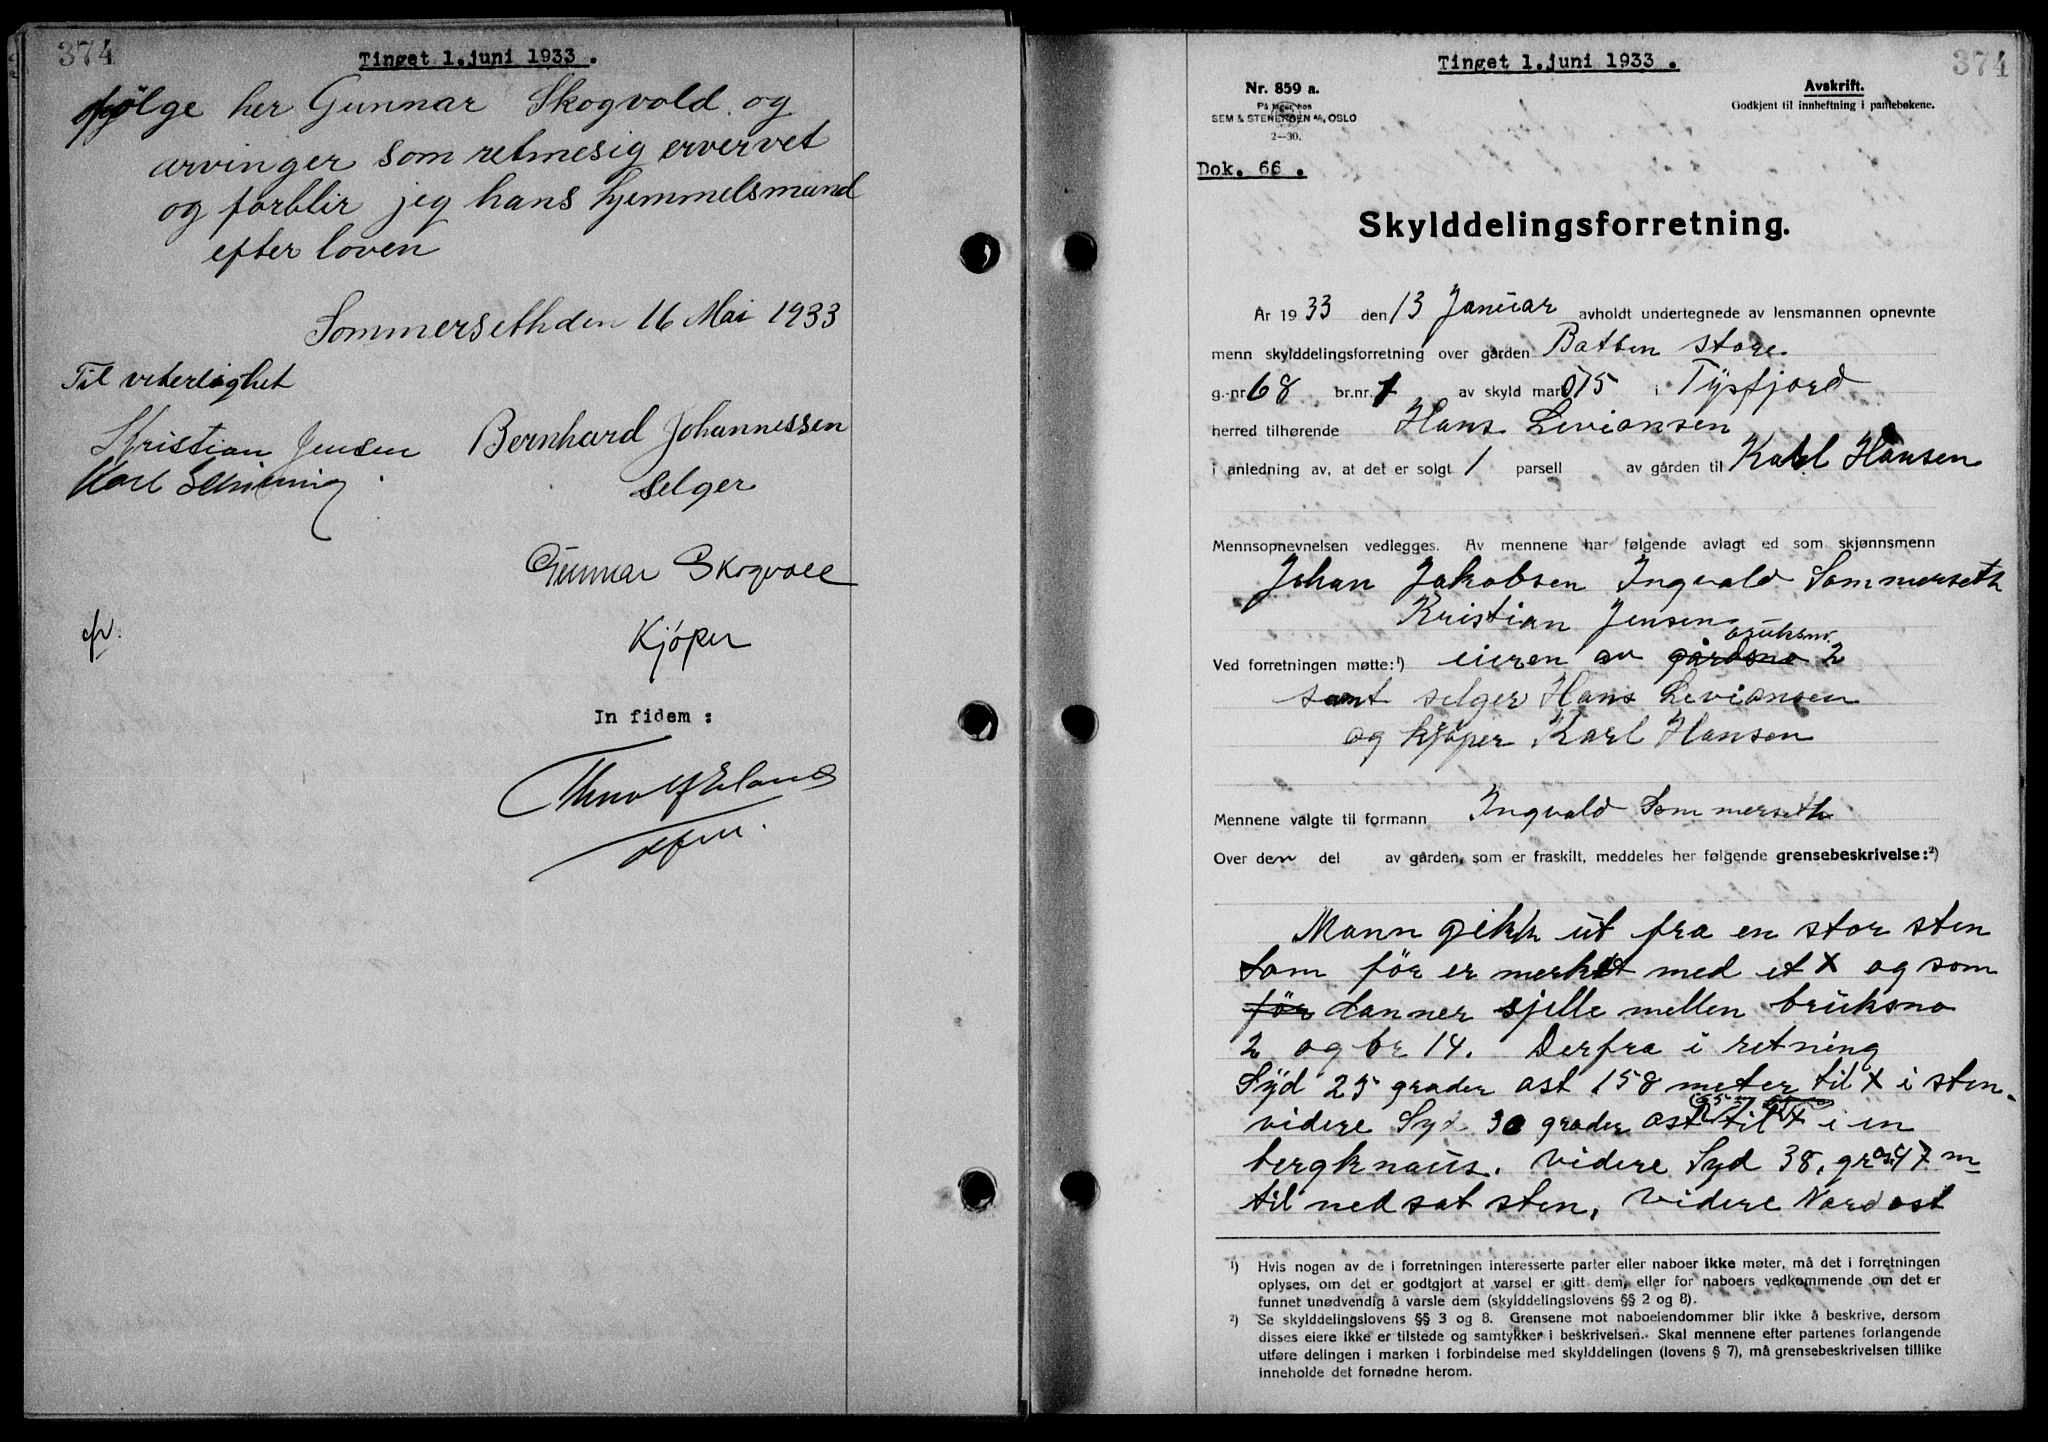 374
Tinget 1. juni 1933.
følge her Gunnar Skogvold og
arvinger som retmesig ervervet
og forblir jeg hans hjemmelsmand
efter loven
Sommerseth den 16 Mai 1933
Til viterlighet
Kristian Jensen
Karl
Bernhard Johannessen
Selger
Gunnar Skogvoll
Kjøper
In fidem:
374
Tinget 1. juni 1933.
Nr. 859 a.
Avskrift.
På lager hos
Godkjent til innheftning i pantebøkene.
SEM & STENERSEN A/S, OSLO
2—30.
Dok. 66.
Skylddelingsforretning.
År 1933 den 13 Januar avholdt undertegnede av lensmannen opnevnte
menn skylddelingsforretning over gården Botten store
g.-nr 68 br.nr. 1 av skyld mar 0,75 i Tysfjord
herred tilhørende Hans Leviansen
i anledning av, at det er solgt 1 parsell av gården til Karl Hansen
Mennsopnevnelsen vedlegges. Av mennene har følgende avlagt ed som skjønnsmenn
Johan Jakobsen Ingvald Sommerseth
Kristian Jensen
Ved forretningen møtte:¹) eieren av gårdsno bruksnr. 2
samt selger Hans Leviansen
og kjøper Karl Hansen
Mennene valgte til formann Ingvald Sommerseth
Over den del av gården, som er fraskilt, meddeles her følgende grensebeskrivelse:²)
Mann gikk ut fra en stor sten
som før er merket med et X og som
før danner sjelle mellen bruksno
2 og br 14. Derfra i retning
Syd 25 grader ost 158 meter til X i sten.
videre Syd 30 grader ost til X i en
bergknaus. Videre Syd 38. gr ost 47 m
til nedsat sten, videre Nord ost
¹) Hvis nogen av de i forretningen interesserte parter eller naboer ikke møter, må det i forretningen
oplyses, om det er godtgjort at varsel er gitt dem, eller for naboers vedkommende om det er
funnet unødvendig å varsle dem (skylddelingslovens §§ 2 og 8).
²) Se skylddelingslovens §§ 3 og 8. Grensene mot naboeiendommer blir ikke å beskrive, dersom
disses eiere ikke er tilstede og samtykker i beskrivelsen. Skal mennene efter partenes forlangende
utføre delingen i marken i forbindelse med skylddelingen (lovens § 7), må grensebeskrivelsen tillike
inneholde det fornødne herom.